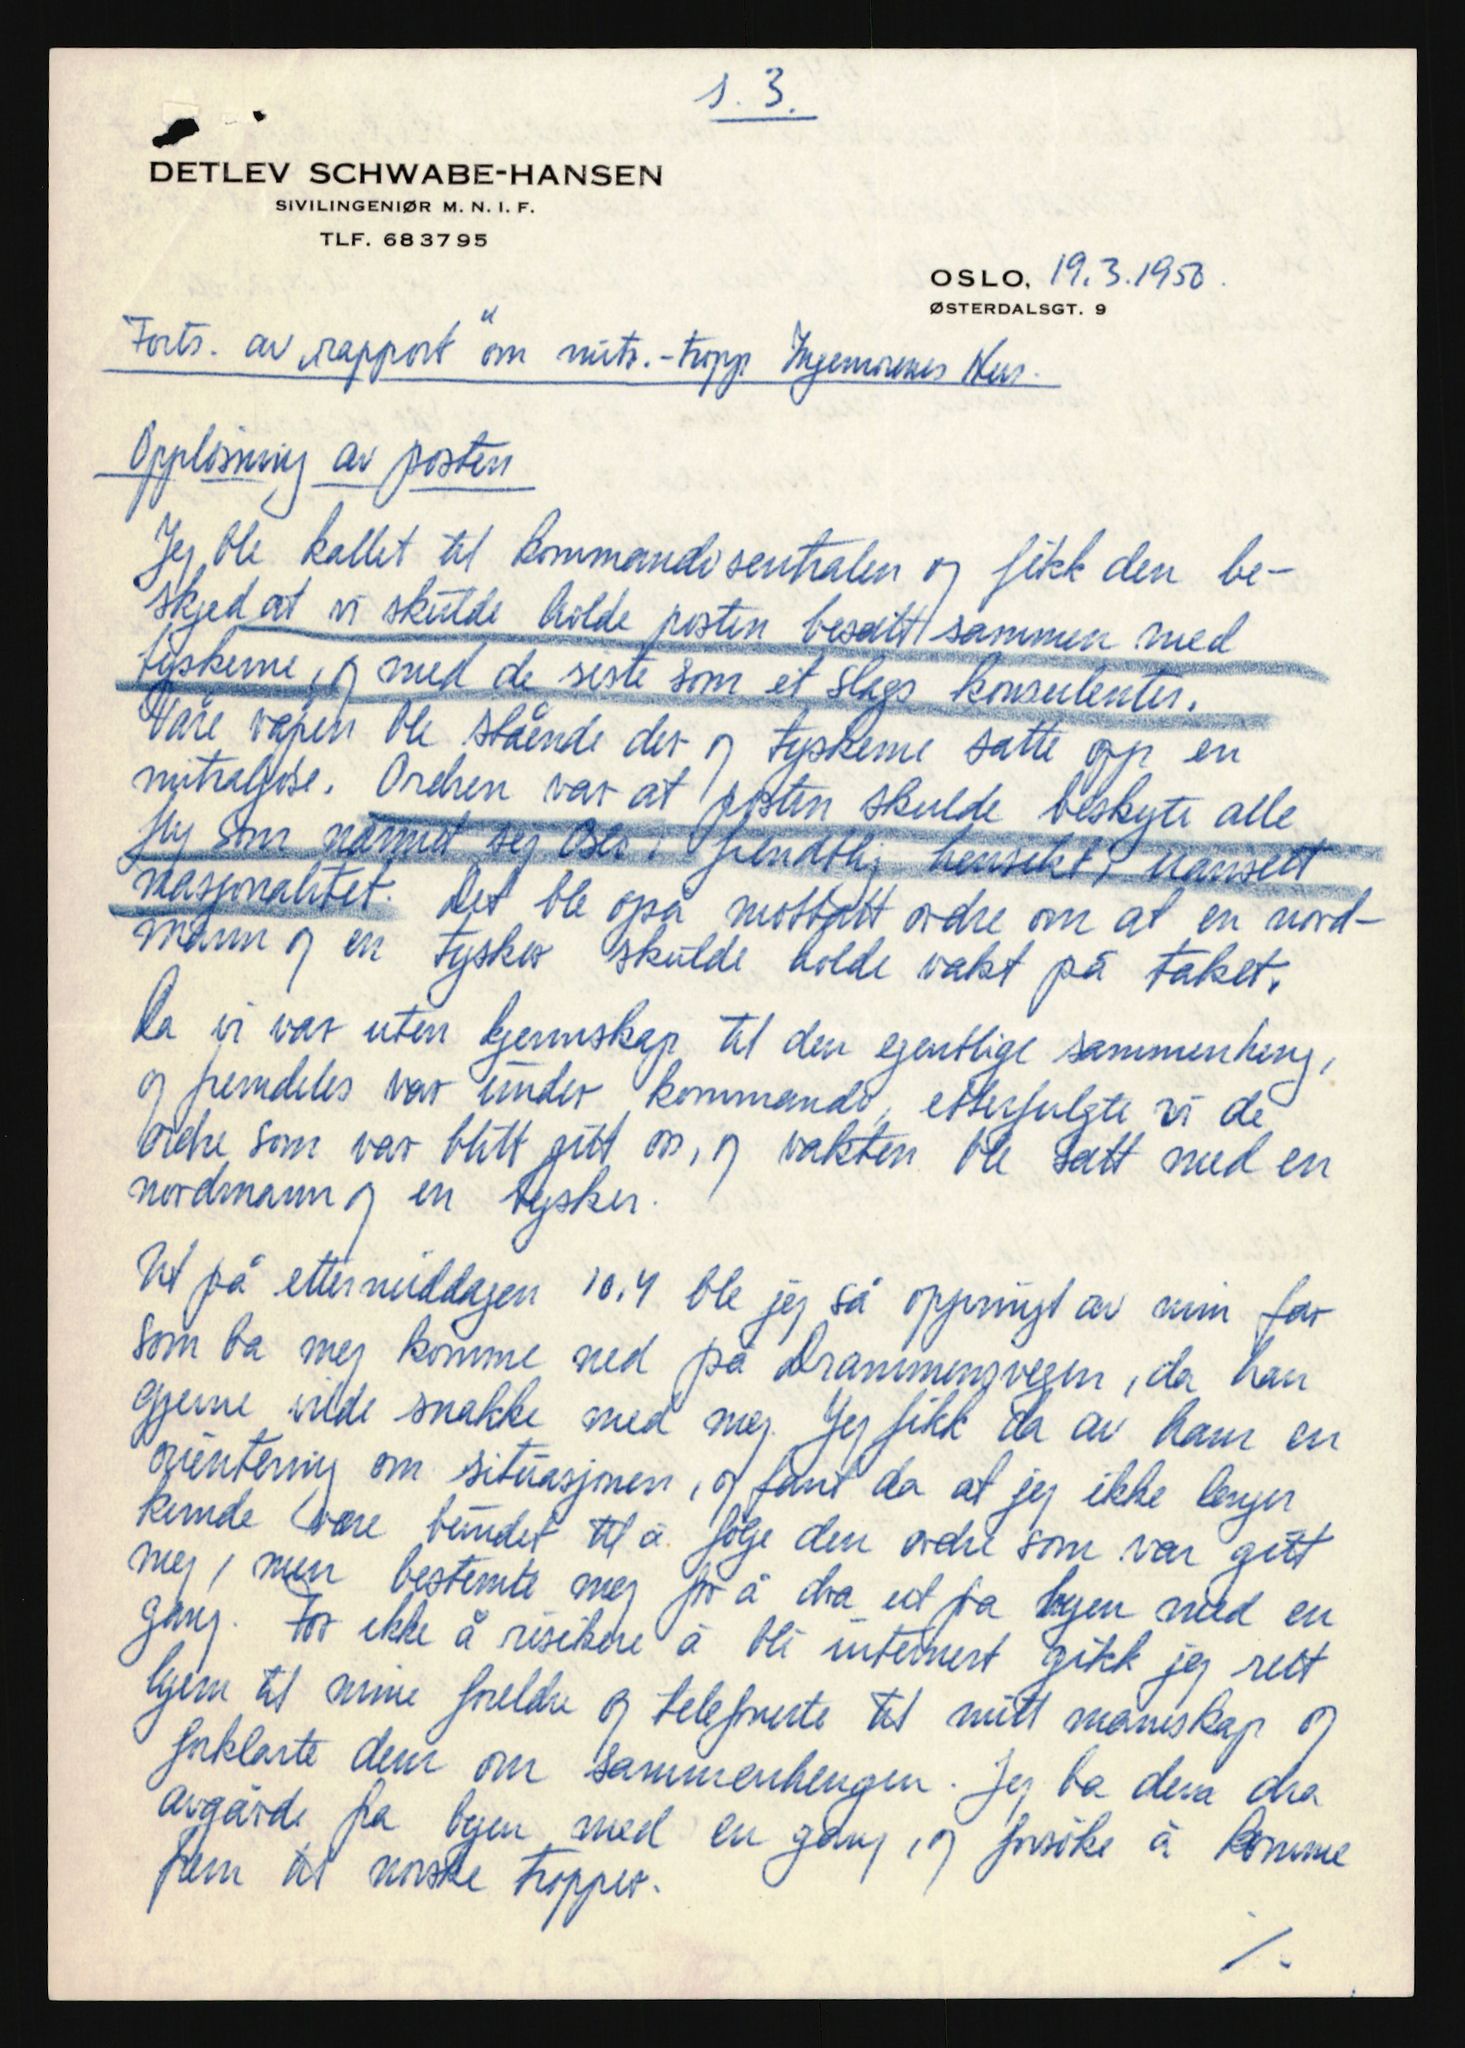 s. 3.
DETLEV SCHWABE-HANSEN
SIVILINGENIØR M. N. I. F.
TLF. 683795
OSLO, 19.3.1950.
ØSTERDALSGT. 9
Forts. av „rapport" om mitr.-tropp Ingeniørenes Hus.
Oppløsning av posten
Jeg ble kallet til kommandosentralen og fikk den be-
skjed at vi skulde holde posten besatt sammen med
tyskerne, og med de siste som et slags konsulenter.
Våre våpen ble stående der og tyskerne satte opp en
mitraljøse. Ordren var at posten skulde beskyte alle
fly som nærmet seg Oslo i fiendtlig hensikt, uansett
nasjonalitet. Det ble også mottatt ordre om at en nord-
mann og en tysker skulde holde vakt på taket.
Da vi var uten kjennskap til den egentlige sammenheng,
og fremdeles var under kommando, etterfulgte vi de
ordre som var blitt gitt oss, og vakten ble satt med en
nordmann og en tysker.
Ut på ettermiddagen 10.4 ble jeg så oppringt av min far
som ba meg komme ned på Drammensvegen, da han
gjerne vilde snakke med meg. Jeg fikk da av ham en
orientering om situasjonen, og fant da at jeg ikke lenger
kunde være bundet til å følge den ordre som var gitt
meg, men bestemte meg for å dra ut fra byen med en
gang. For ikke å risikere å bli internert gikk jeg rett
hjem til mine foreldre og telefonerte til mitt manskap og
forklarte dem om sammenhengen. Jeg ba dem dra
avgårde fra byen med en gang, og forsøke å komme
frem til norske tropper.
./.